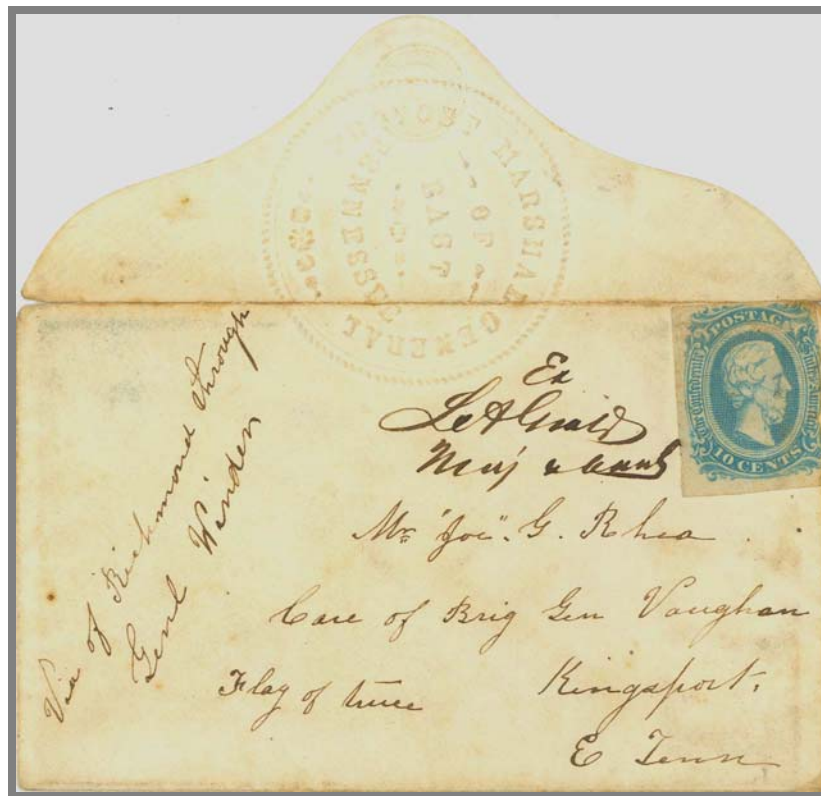 PROVOST MARSHAL GENERAL
OF
EAST
TENNESSEE
POSTAGE
The Confederate States of America
10 CENTS
Via of Richmond through
Genl Winder
Ex
Maj &
Mr "Joe". G. Rhea
Care of Brig Gen Vaughan
Flag of truce
Kingsport.
E Tenn